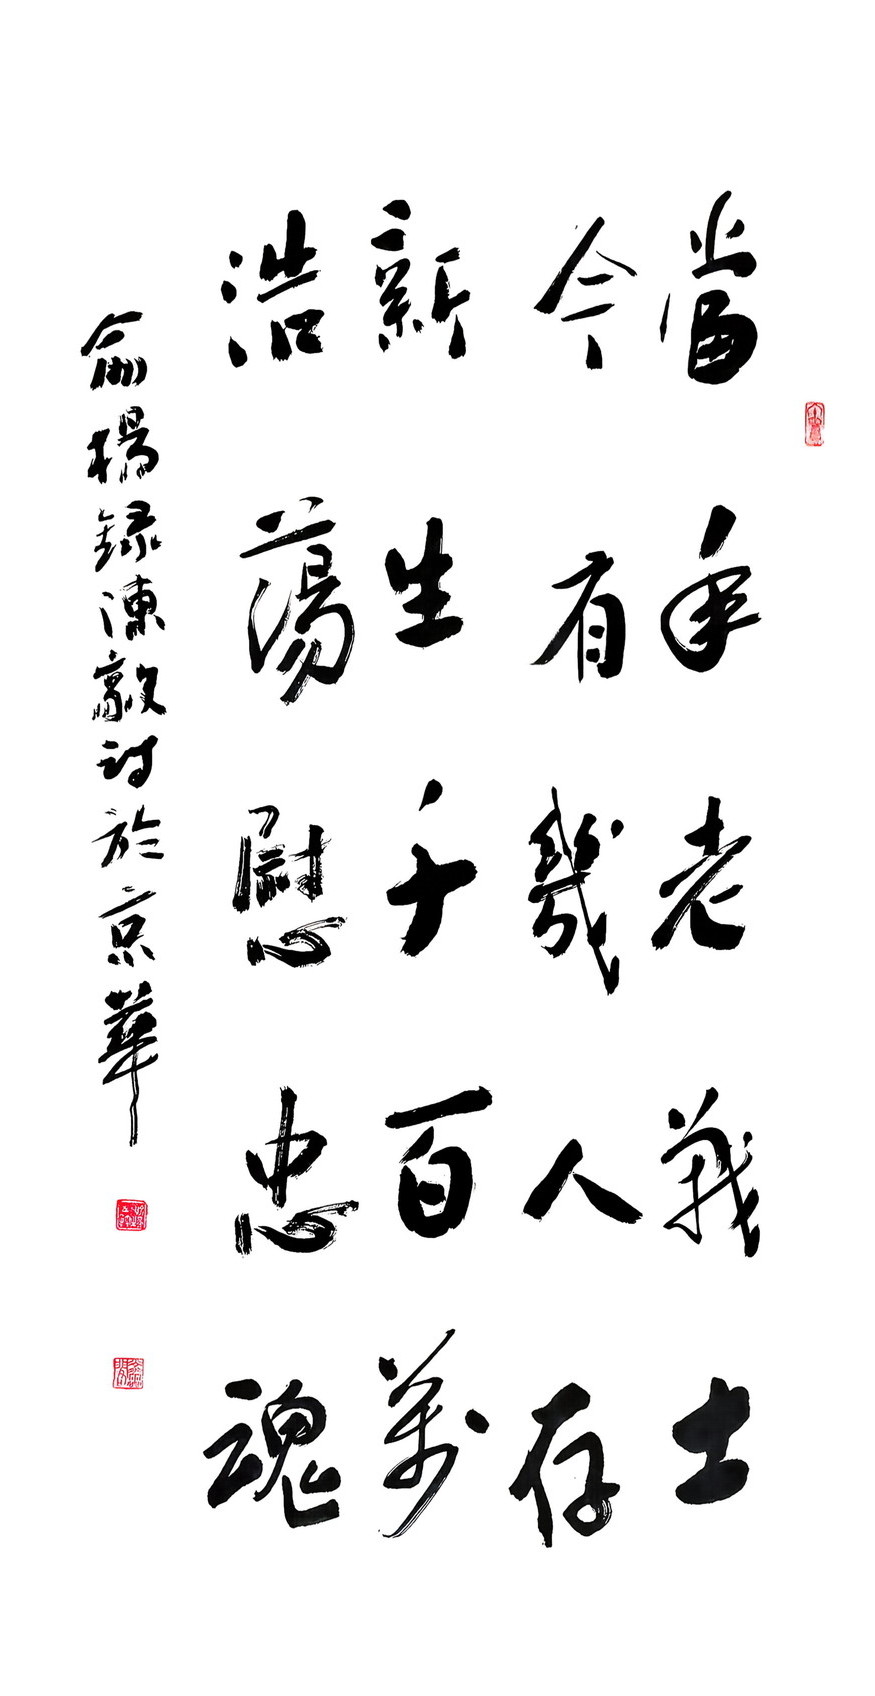 當年老戰士
今有幾人存
新生千百萬
浩蕩慰忠魂
俞楊錄陳毅詩於京華